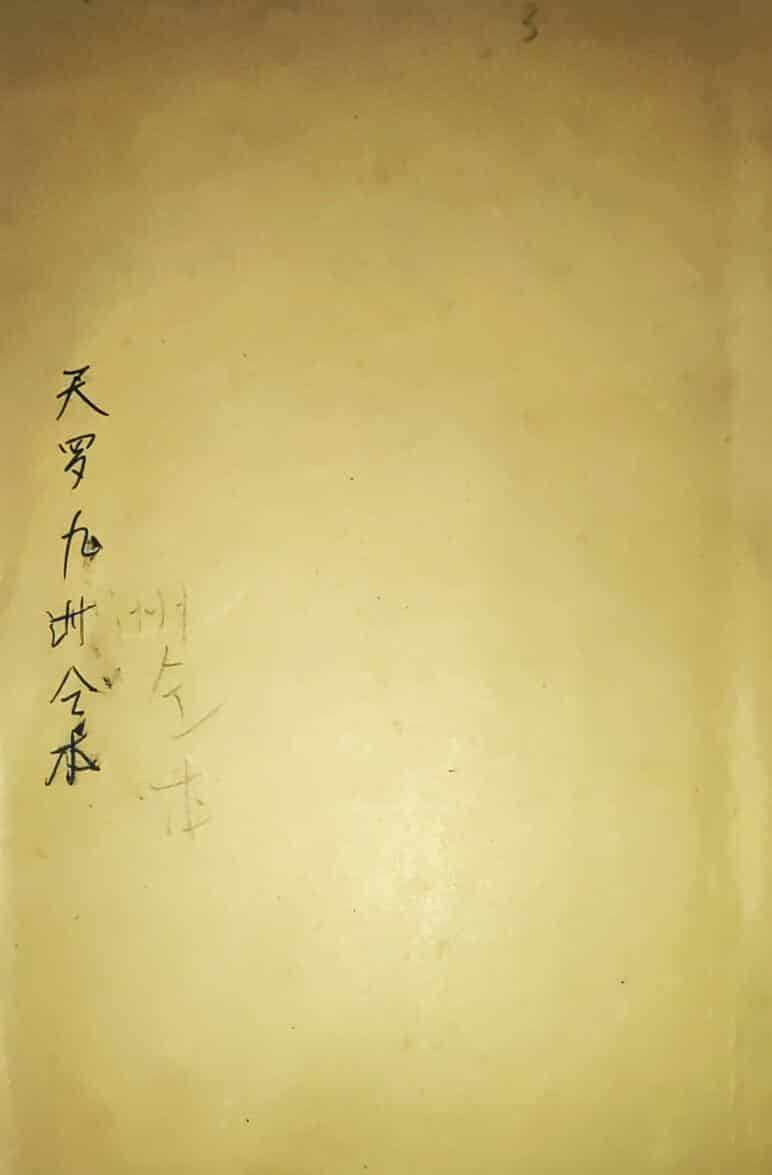 3
洲全本
天罗九州全本